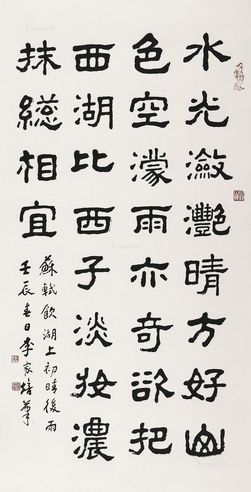 水光瀲灩晴方好山
色空濛雨亦奇欲把
西湖比西子淡妝濃
抹總相宜
蘇軾飲湖上初晴後雨
壬辰春日李家培筆